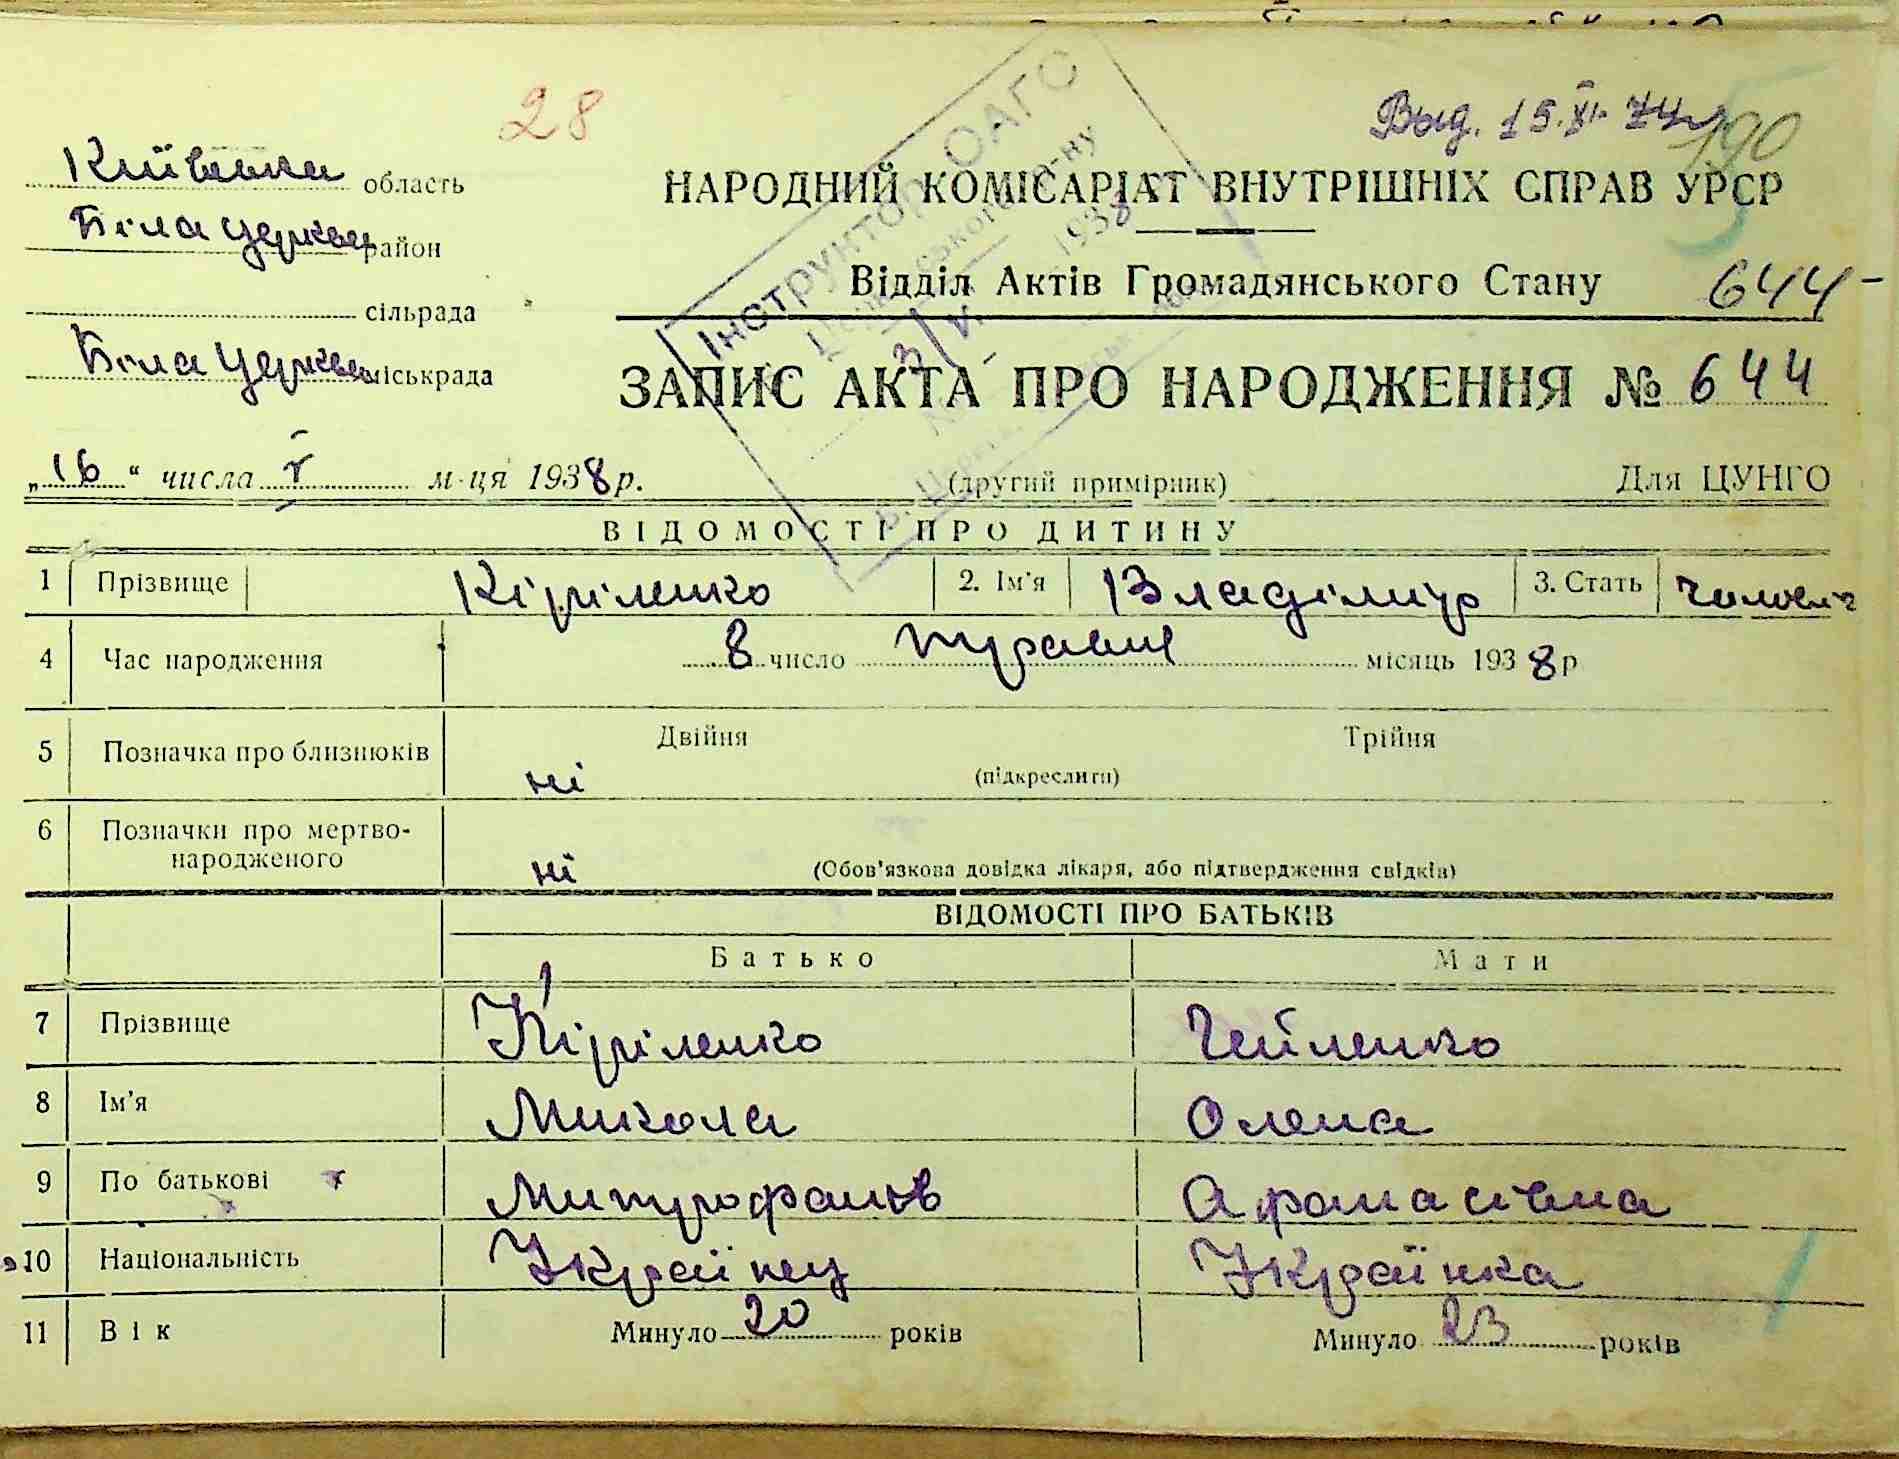 28
Выд. 15.XI.74
190
Київська область
Біла церква район
сільрада
Біла Церква міськрада
Інструктор ОАГС
ського р-ну
1938
НАРОДНИЙ КОМІСАРІАТ ВНУТРІШНІХ СПРАВ УРСР
Відділ Актів Громадянського Стану
644
ЗАПИС АКТА ПРО НАРОДЖЕННЯ № 644
„16“ числа V м-ця 1938 р.
(другий примірник)
Для ЦУНГО
ВІДОМОСТІ ПРО ДИТИНУ
1 Прізвище Кіріленко 2. Ім'я Владімир 3. Стать
4 Час народження 8 число травня місяць 1938 р
5 Позначка про близнюків ні Двійня Трійня
(підкреслити)
6 Позначки про мертво-
народженого ні (Обов'язкова довідка лікаря, або підтвердження свідків)
ВІДОМОСТІ ПРО БАТЬКІВ
Батько Мати
7 Прізвище Кіріленко Гейленко
8 Ім'я Микола Олена
9 По батькові Митрофанов Афанасівна
10 Національність Українец Українка
11 Вік Минуло 20 років Минуло 23 років